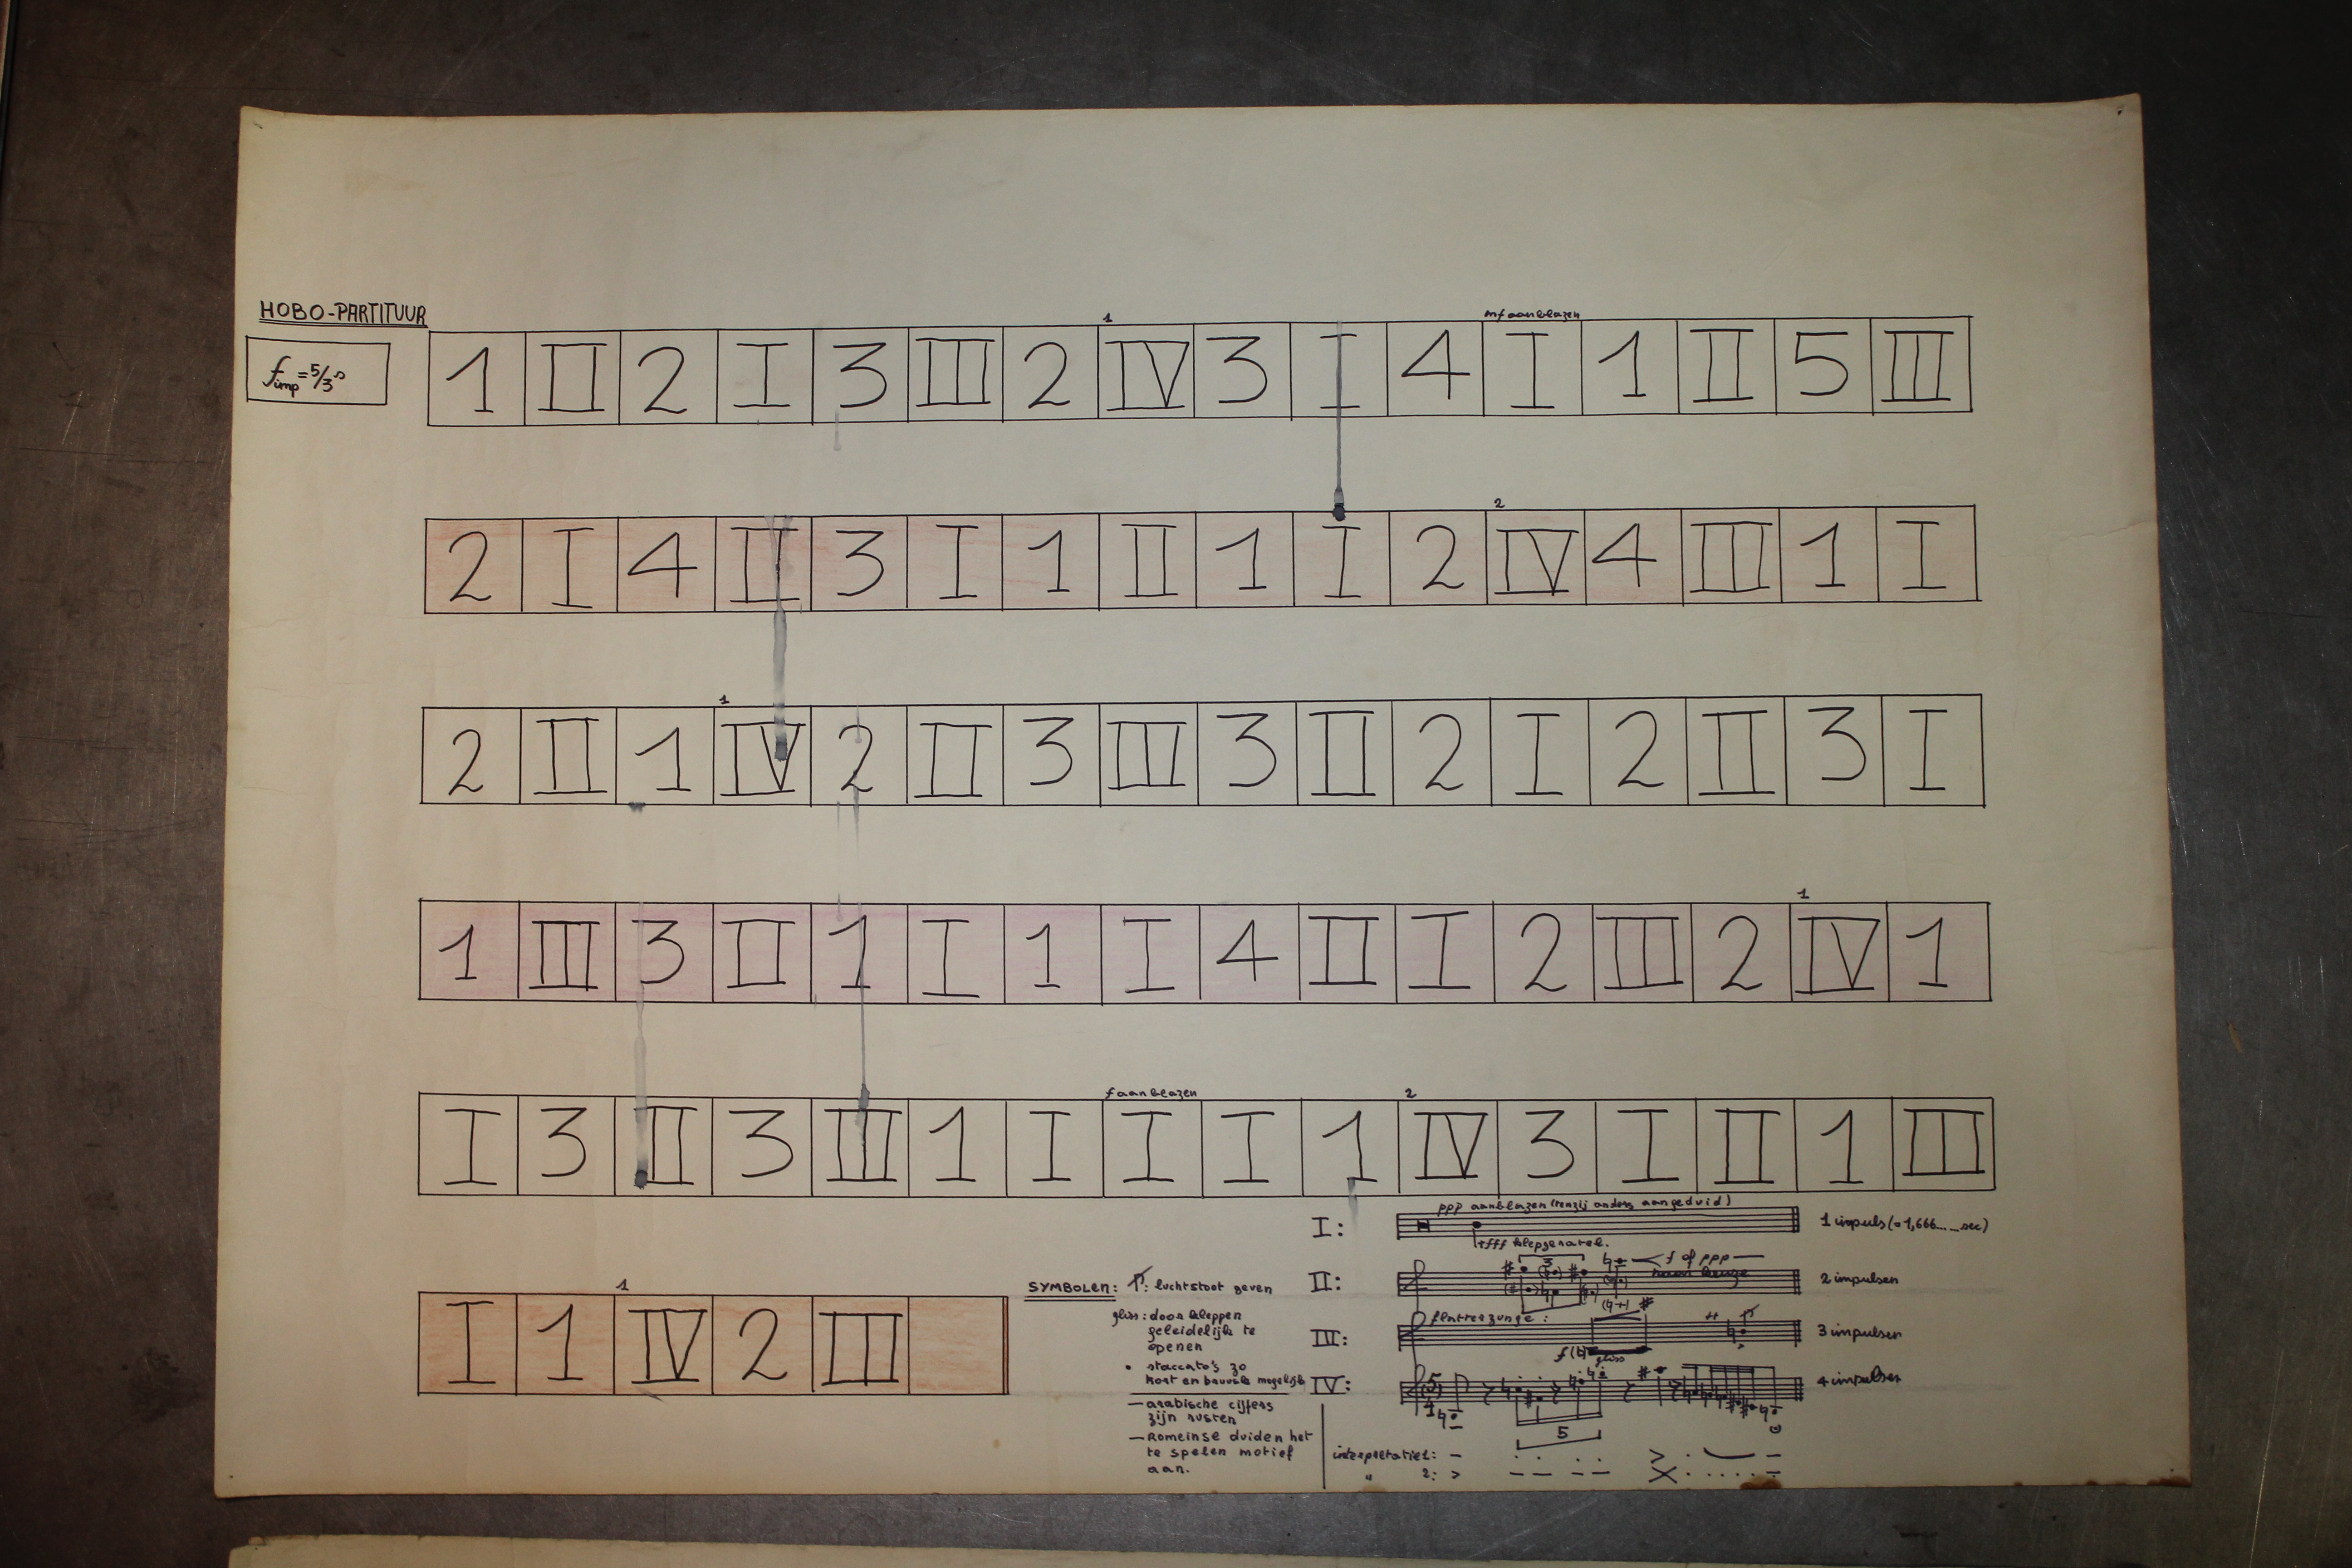 HOBO-PARTITUUR
f imp = 5/3 s
1
mf aanblazen
1 II 2 I 3 III 2 IV 3 I 4 I 1 II 5 III
2
2 I 4 II 3 I 1 II 1 I 2 IV 4 III 1 I
1
2 II 1 IV 2 II 3 III 3 II 2 I 2 II 3 I
1
1 III 3 II 1 I 1 I 4 II I 2 III 2 IV 1
f aanblazen
2
I 3 II 3 III 1 I I I 1 IV 3 I II 1 III
1
I 1 IV 2 III
SYMBOLEN: : luchtstoot geven
gliss: door kleppen
geleidelijk te
openen
• staccato's zo
kort en bevuild mogelijk
— arabische cijfers
zijn rusten
— Romeinse duiden het
te spelen motief
aan.
ppp aanblazen (tenzij anders aangeduid)
I: 1 impuls (= 1,666......sec)
+fff klepgeratel.
3 f of ppp
naar keuze
II: 2 impulsen
flatterzunge:
III: 3 impulsen
gliss
IV: 4 impulsen
5
interpretatie 1: –
" 2: >